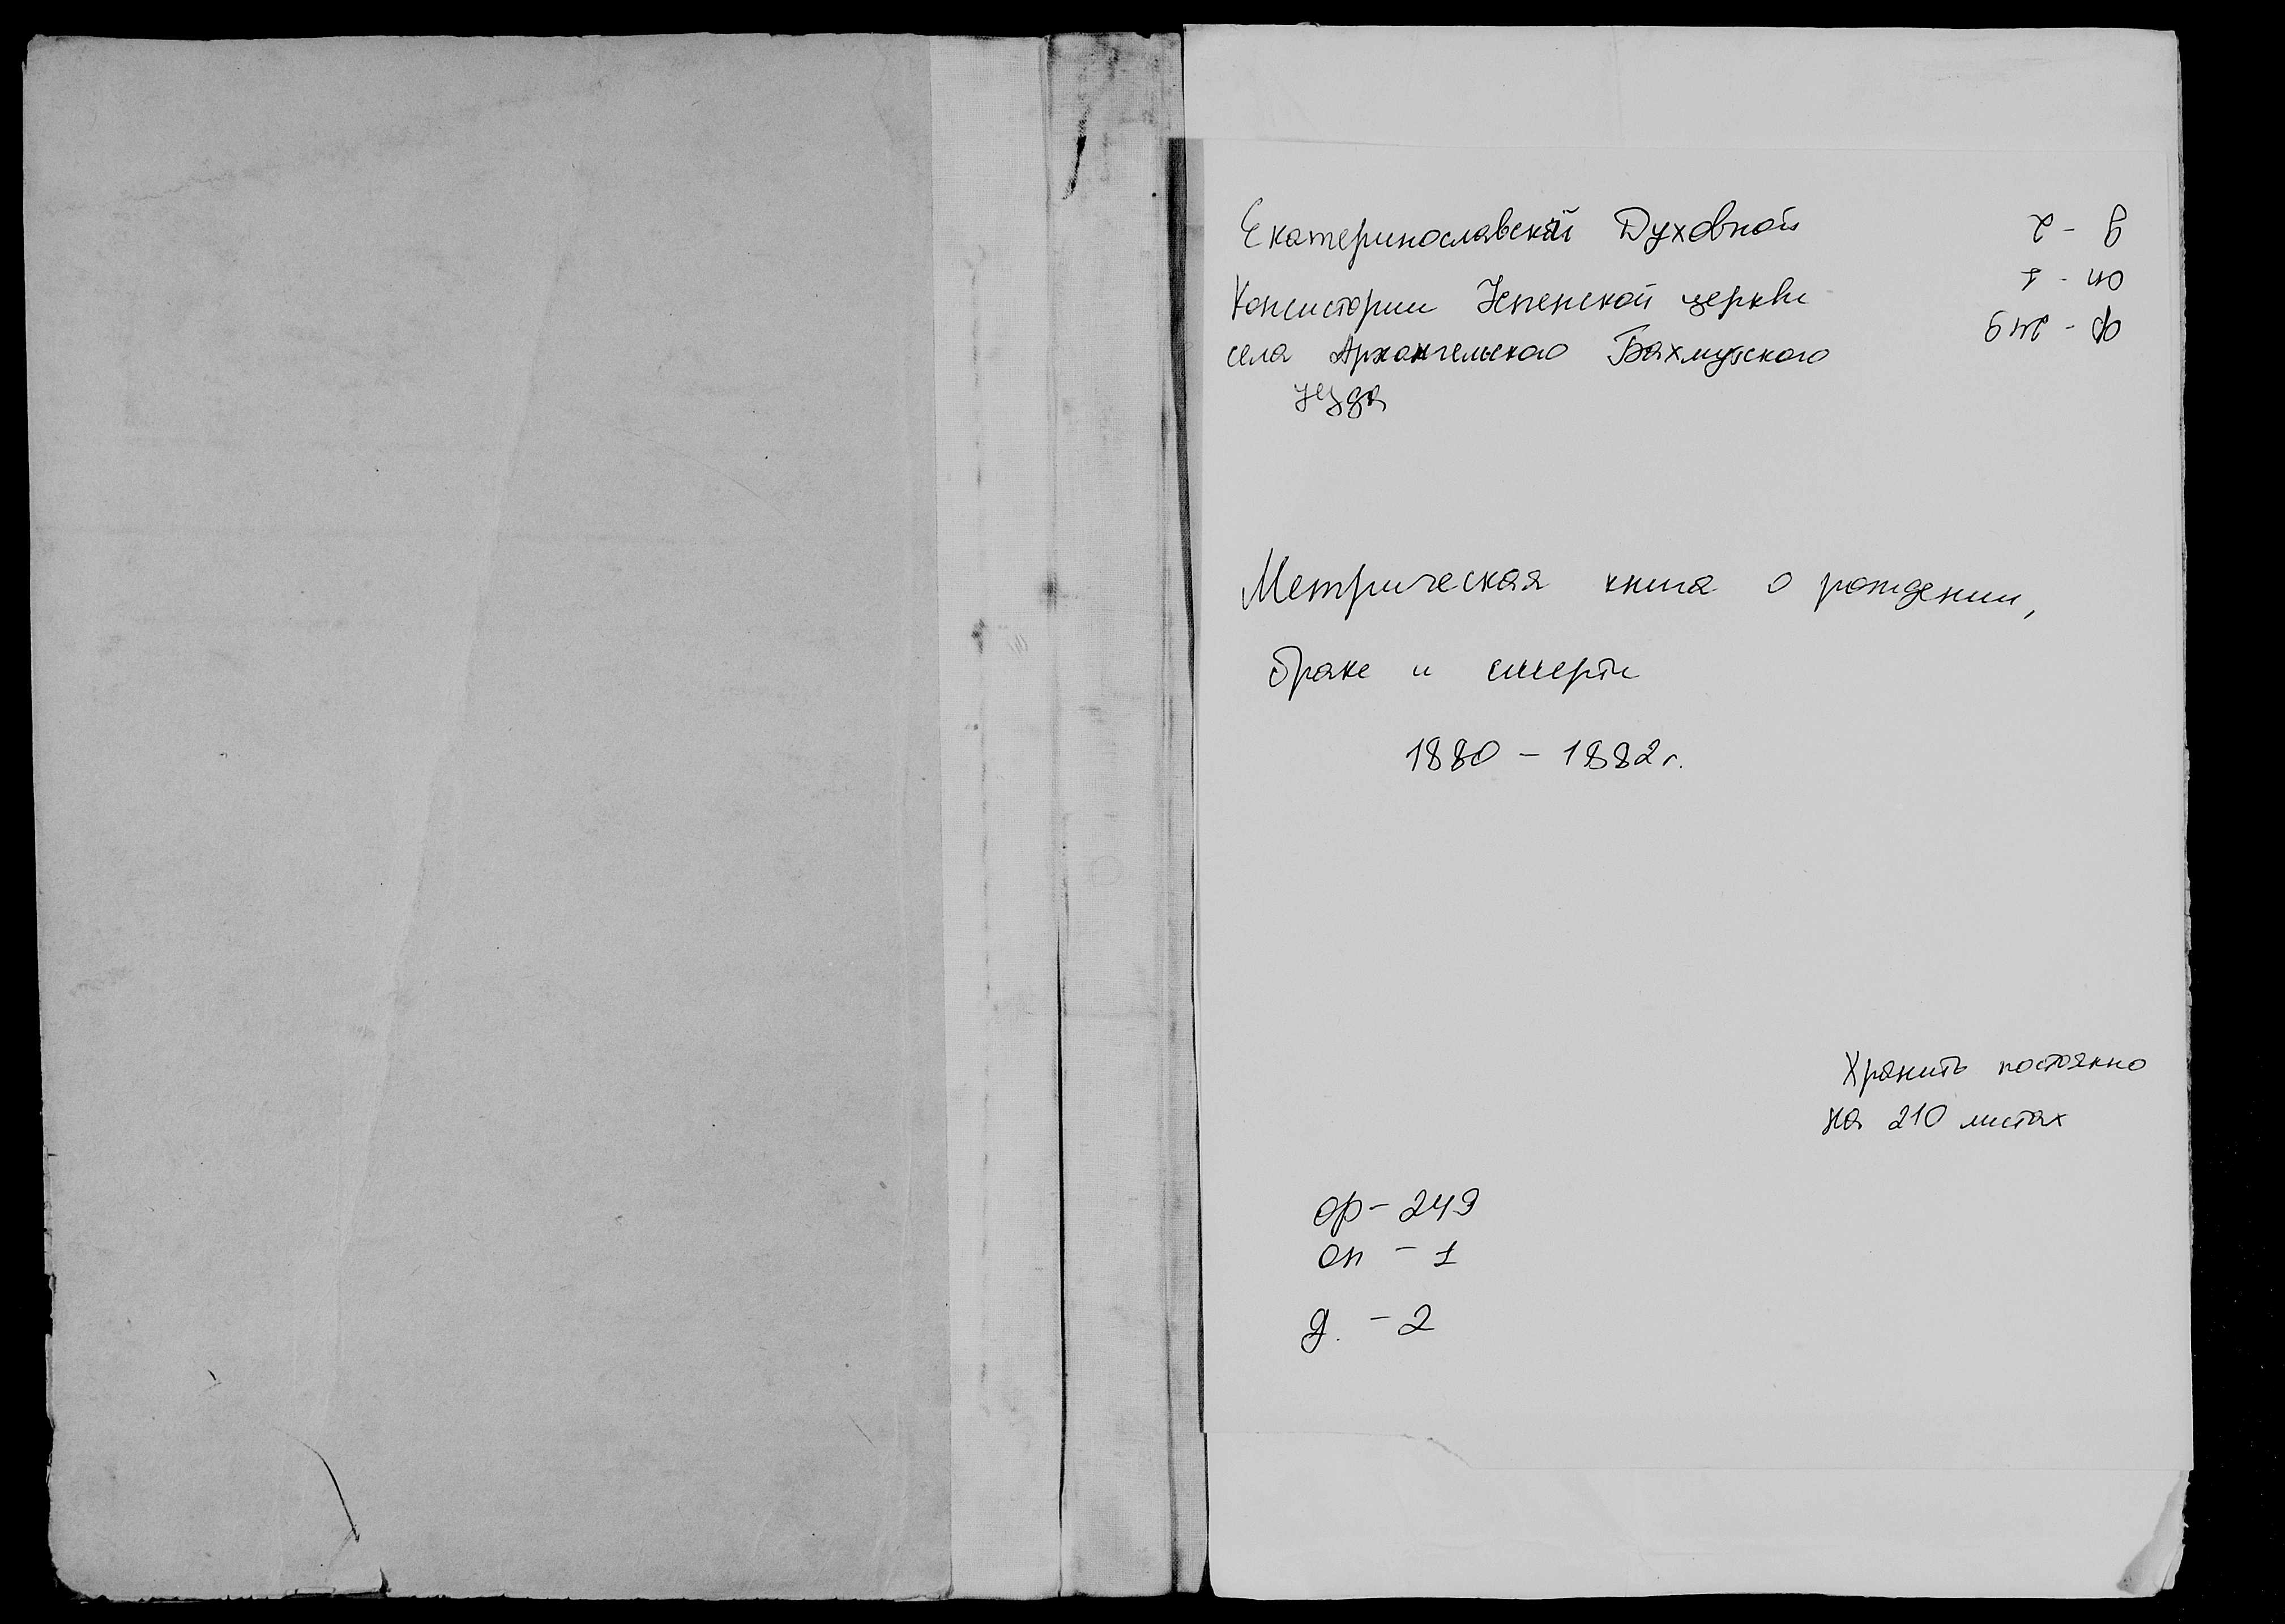 Екатеринославской Духовной
Консистории Успенской церкви
села Архангельского Бахмутского
уезда
ф - 249
оп - 1
д - 2
Метрическая книга о рождении,
браке и смерти
1880 - 1882 г.
Хранить постоянно
на 210 листах
ф - 249
оп - 1
д. - 2